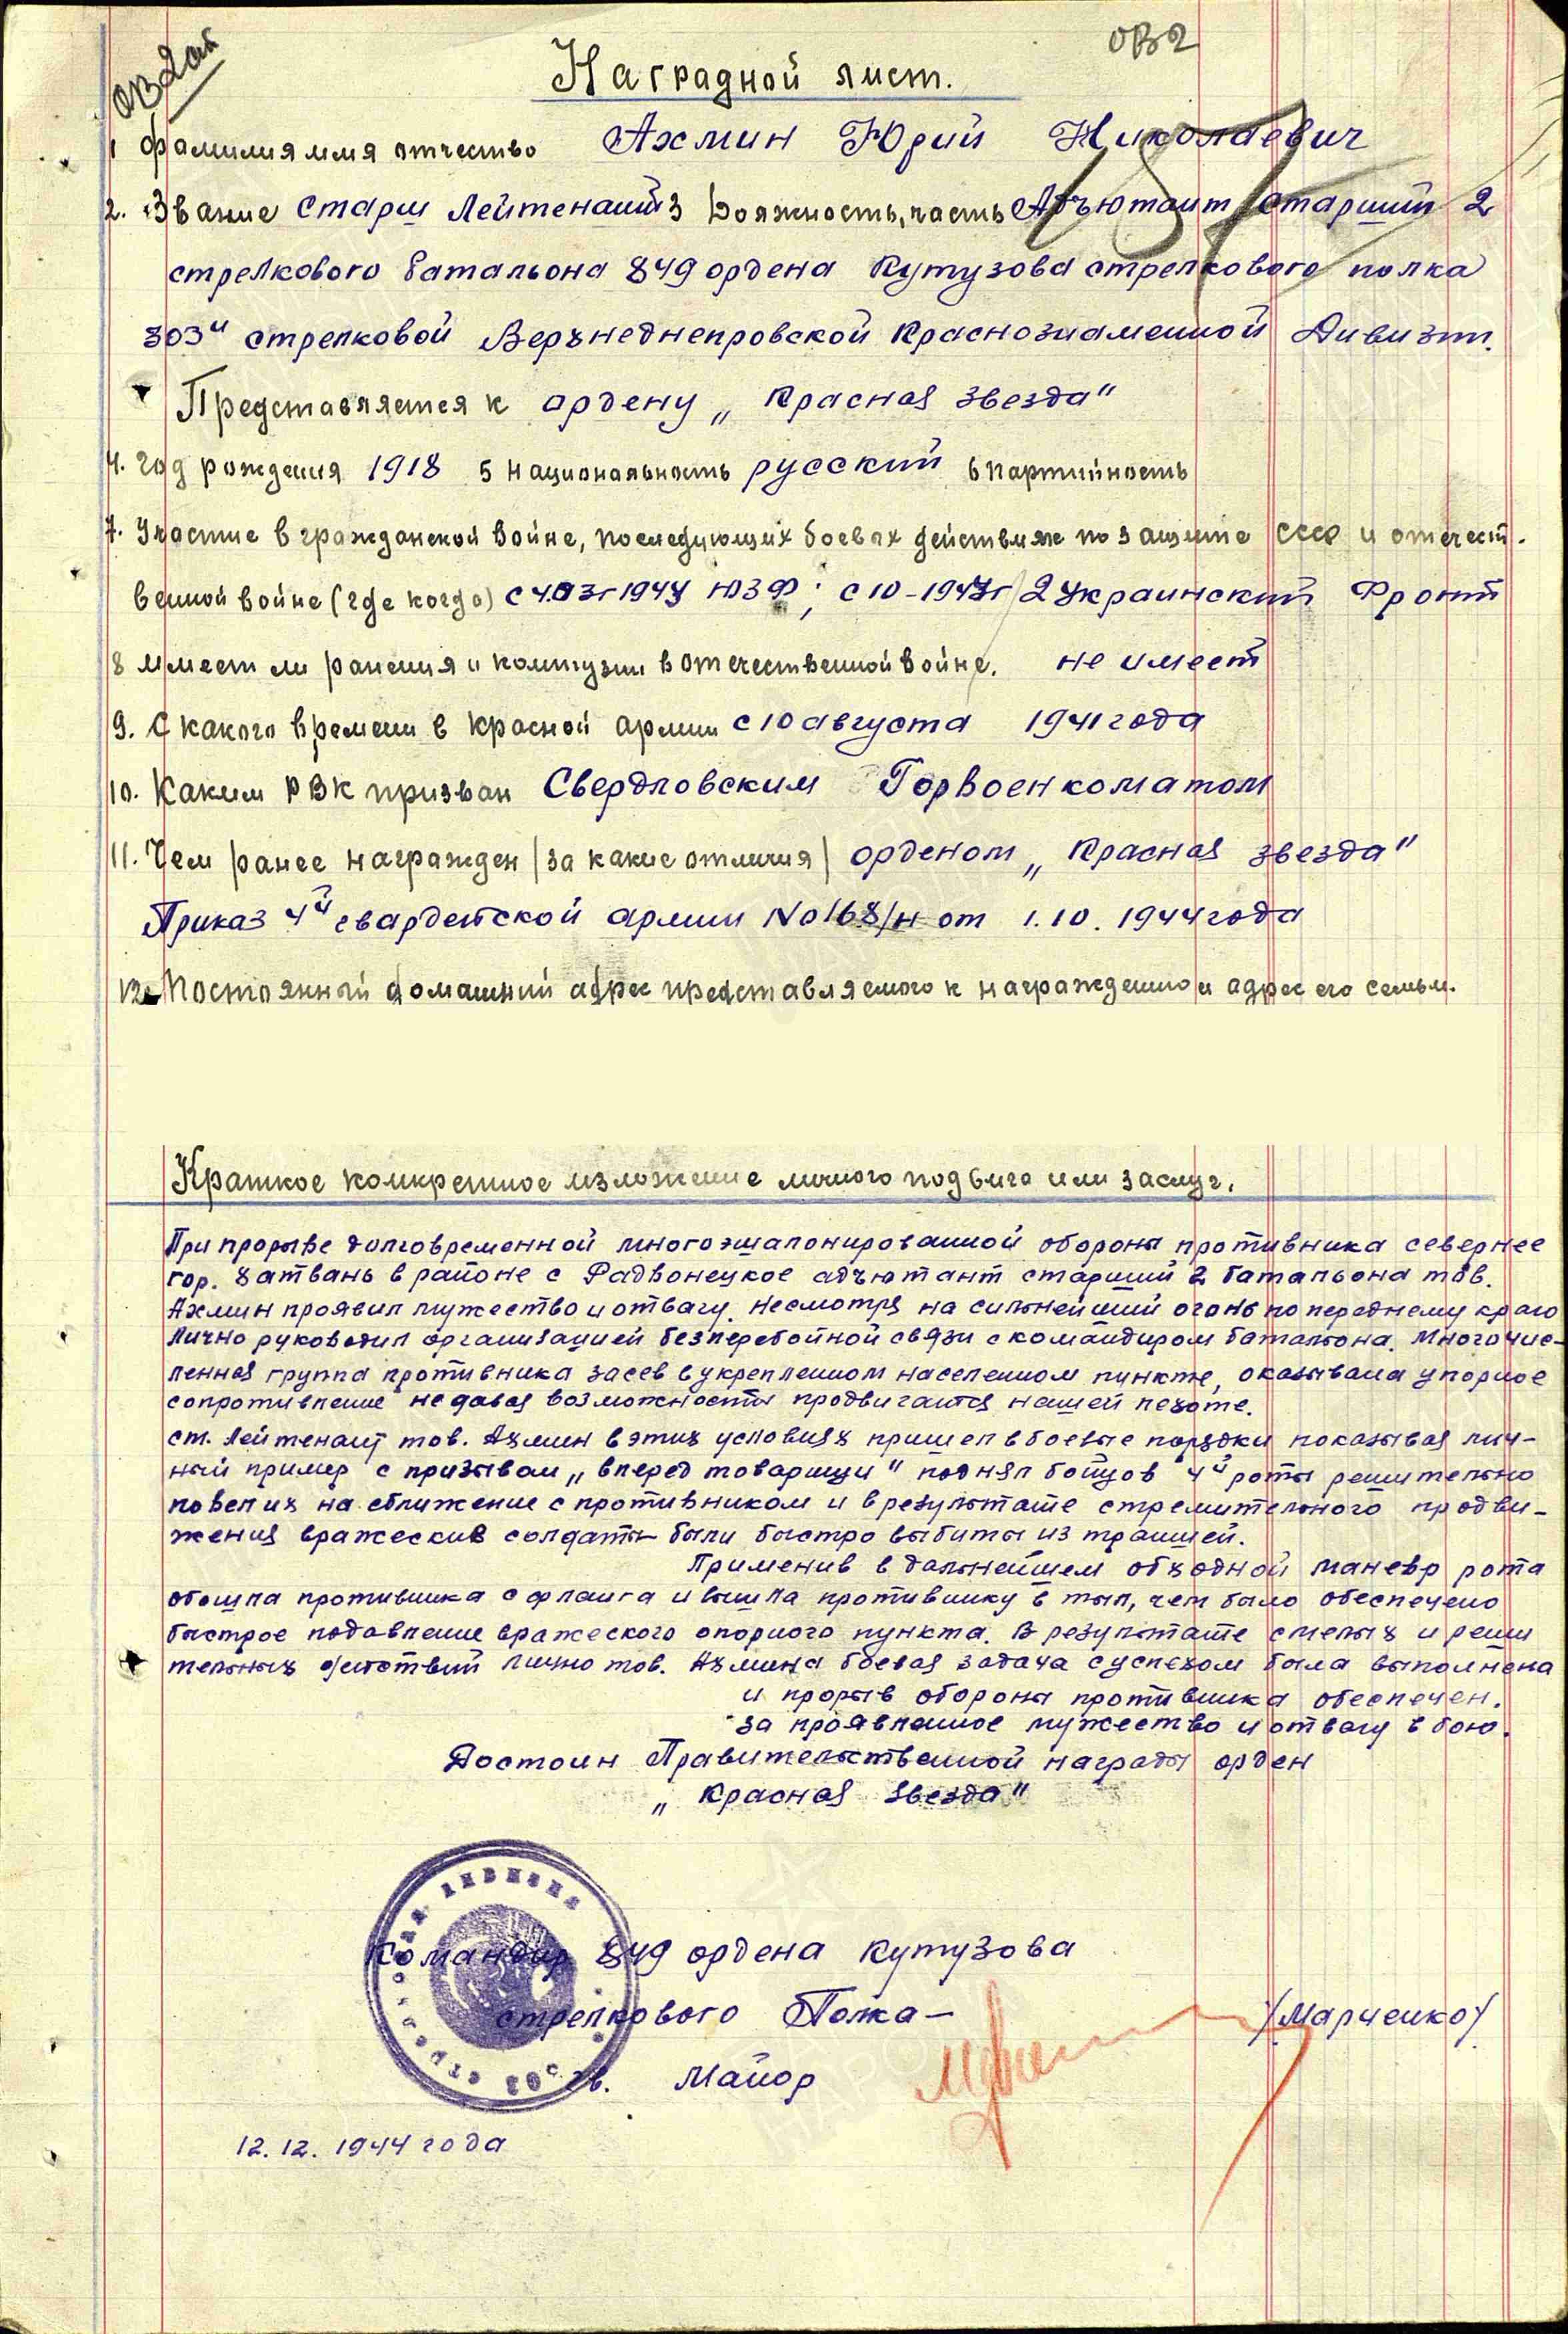 ОВ2
Наградной лист.
1 Фамилия имя отчество Ахмин Юрий Николаевич
2. Звание Старш Лейтенант 3 Должность, часть Адъютант Старший 2
стрелкового батальона 849 ордена Кутузова стрелкового полка
303й стрелковой Верхнеднепровской Краснознаменной Дивизии.
Представляется к ордену „Красная Звезда"
4. Год рождения 1918 5 Национальность русский 6 Партийность
7. Участие в гражданской войне, последующих боевых действиях по защите СССР и отечест-
венной войне (где когда) с 4.03г 1944 ЮЗФ; с 10-1944г 2 Украинский Фронт
8 Имеет ли ранения и контузии в отечественной войне. не имеет
9. С какого времени в Красной армии с 10 августа 1941 года
10. Каким РВК призван Свердловским Горвоенкоматом
11. Чем ранее награжден (за какие отличия) орденом „Красная звезда"
Приказ 4й гвардейской армии No 168/н от 1.10.1944 года
12. Постоянный домашний адрес представляемого к награждению и адрес его семьи.
Краткое конкретное изложение личного подвига или заслуг.
При прорыве долговременной многоэшалонированной обороны противника севернее
гор. Хатвань в районе с Радвонецкое адъютант старший 2 батальона тов.
Ахмин проявил мужество и отвагу. Несмотря на сильнейший огонь по переднему краю
лично руководил организацией безперебойной связи с командиром батальона. Многочис-
ленная группа противника засев в укрепленном населенном пункте, оказывала упорное
сопротивление не давая возможности продвигаться нашей пехоте.
ст. Лейтенант тов. Ахмин в этих условиях пришел в боевые порядки показывая лич-
ный пример с призывом „вперед товарищи" поднял бойцов 4й роты решительно
повел их на сближение с противником и в результате стремительного продви-
жения вражеские солдаты были быстро выбиты из траншей.
Применив в дальнейшем обходной маневр рота
обошла противника с фланга и вышла противнику в тыл, чем было обеспечено
быстрое подавление вражеского опорного пункта. В результате смелых и реши
тельных действий лично тов. Ахмина боевая задача с успехом была выполнена
и прорыв обороны противника обеспечен.
за проявленное мужество и отвагу в бою.
Достоин Правительственной награды орден
„Красная Звезда"
Командир 849 ордена Кутузова
стрелкового Полка –
гв. Майор /Марченко/
12.12.1944 года